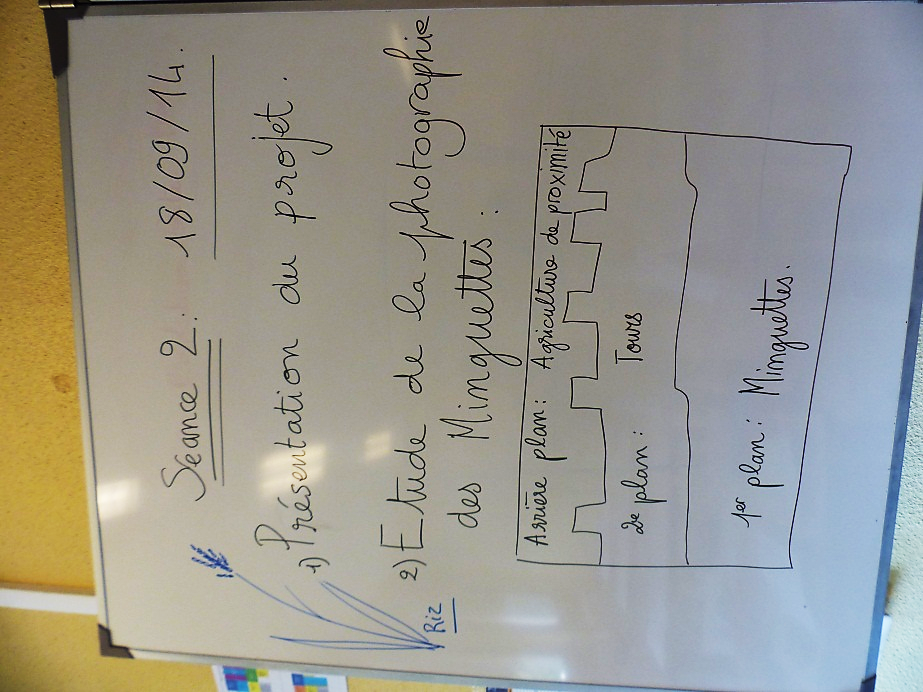 Séance 2: 18/09/14.
1) Présentation du projet.
2) Etude de la photographie
des Minguettes :
Arrière plan: Agriculture de proximité
2e plan: Tours
1er plan: Minguettes.
Riz